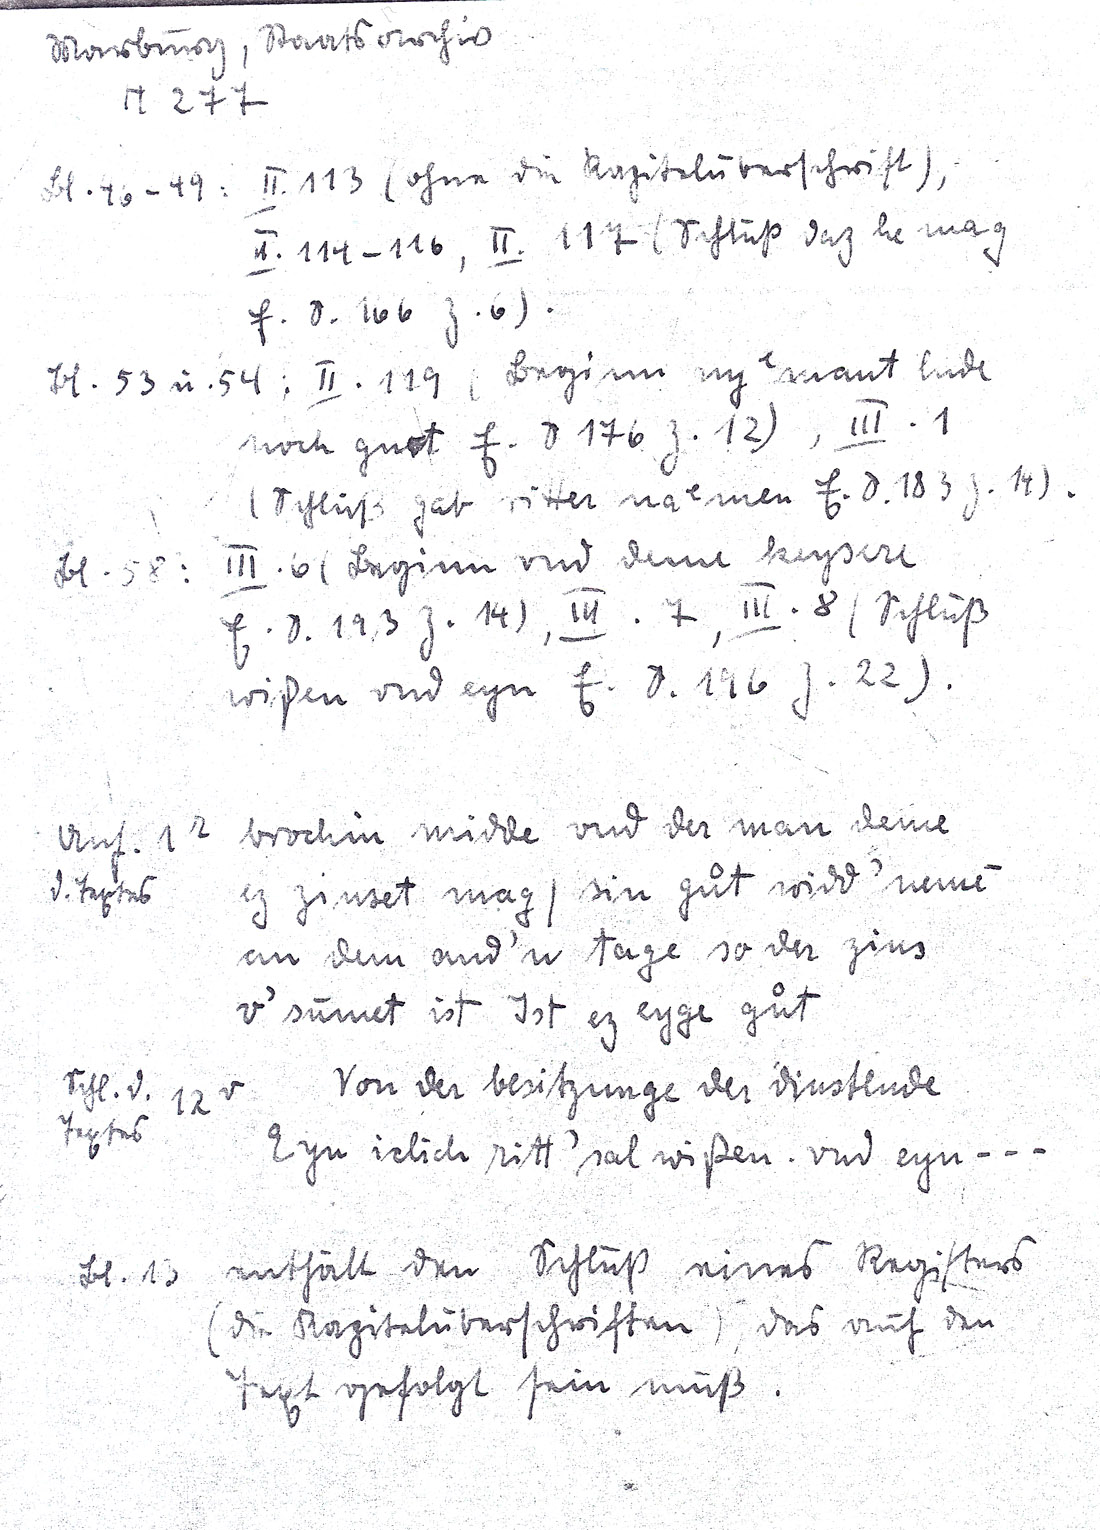 Marburg, Staatsarchiv
H 277
Bl. 46-49: II. 113 (ohne die Kapitelüberschrift),
II. 114-116, II. 117 (Schluß daz he mag
E. S. 166 Z. 6).
Bl. 53 u. 54: II. 119 (Beginn nyͤmant lude
noch guot E. S 176 Z. 12), III. 1
(Schluß gab ritter naͤmen E. S. 183 Z. 14).
Bl. 58: III. 6 (Beginn vnd deme keysere
E. S. 193 Z. 14), III. 7, III. 8 (Schluß
wißen vnd eyn E. S. 196 Z. 22).
Anf. 1r brochin midde vnd der man deme
d. Textes ez zinset mag / sin gůt widd'nemē
an dem and'n tage so der zins
v'sumet ist Ist ez eyge gůt
Schl. d. 12v Von der besitzunge der dinstlude
Textes Eyn iclich ritt'sal wißen. vnd eyn---
Bl. 13 enthält den Schluß eines Registers
(die Kapitelüberschriften) das auf den
Text gefolgt sein muß.